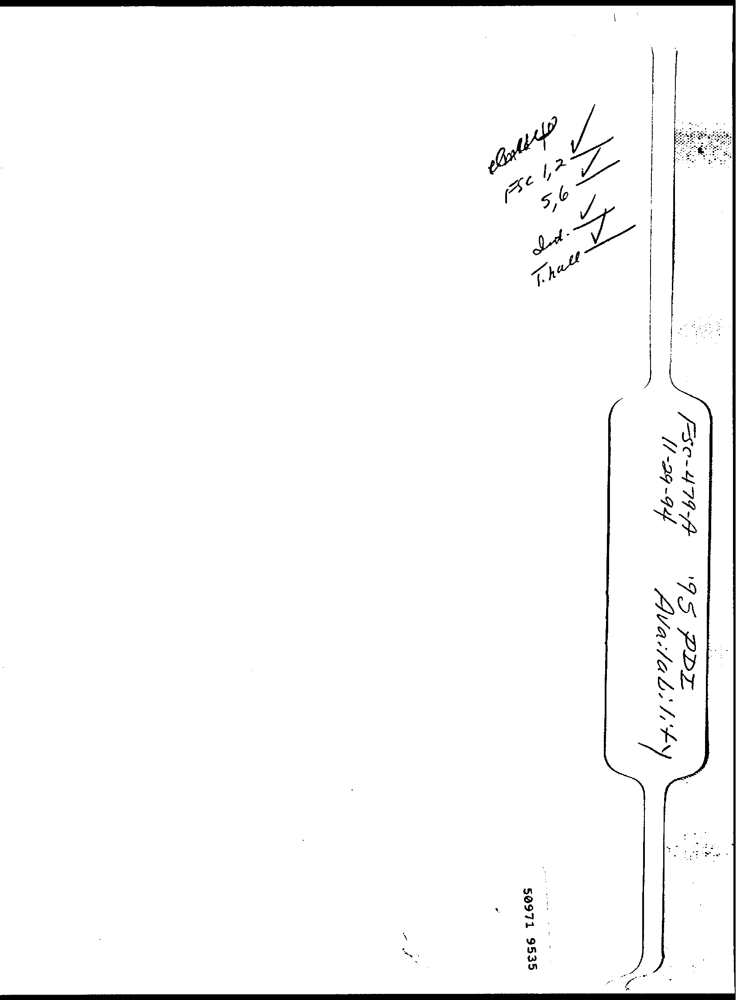 FSC 1,2 ✓
5,6 ✓
Ind. ✓
T. hall ✓
FSC-479-A '95 PDI
11-29-94 Availability
50971 9535